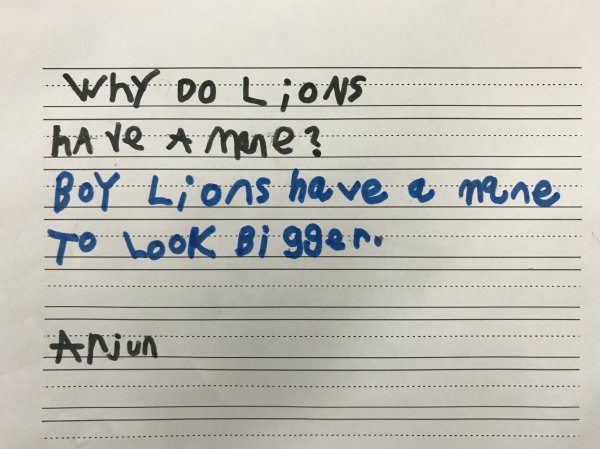 WhY DO LiONS
hAve A mane?
BoY Lions have a mane
To LooK Bigger.
Arjun